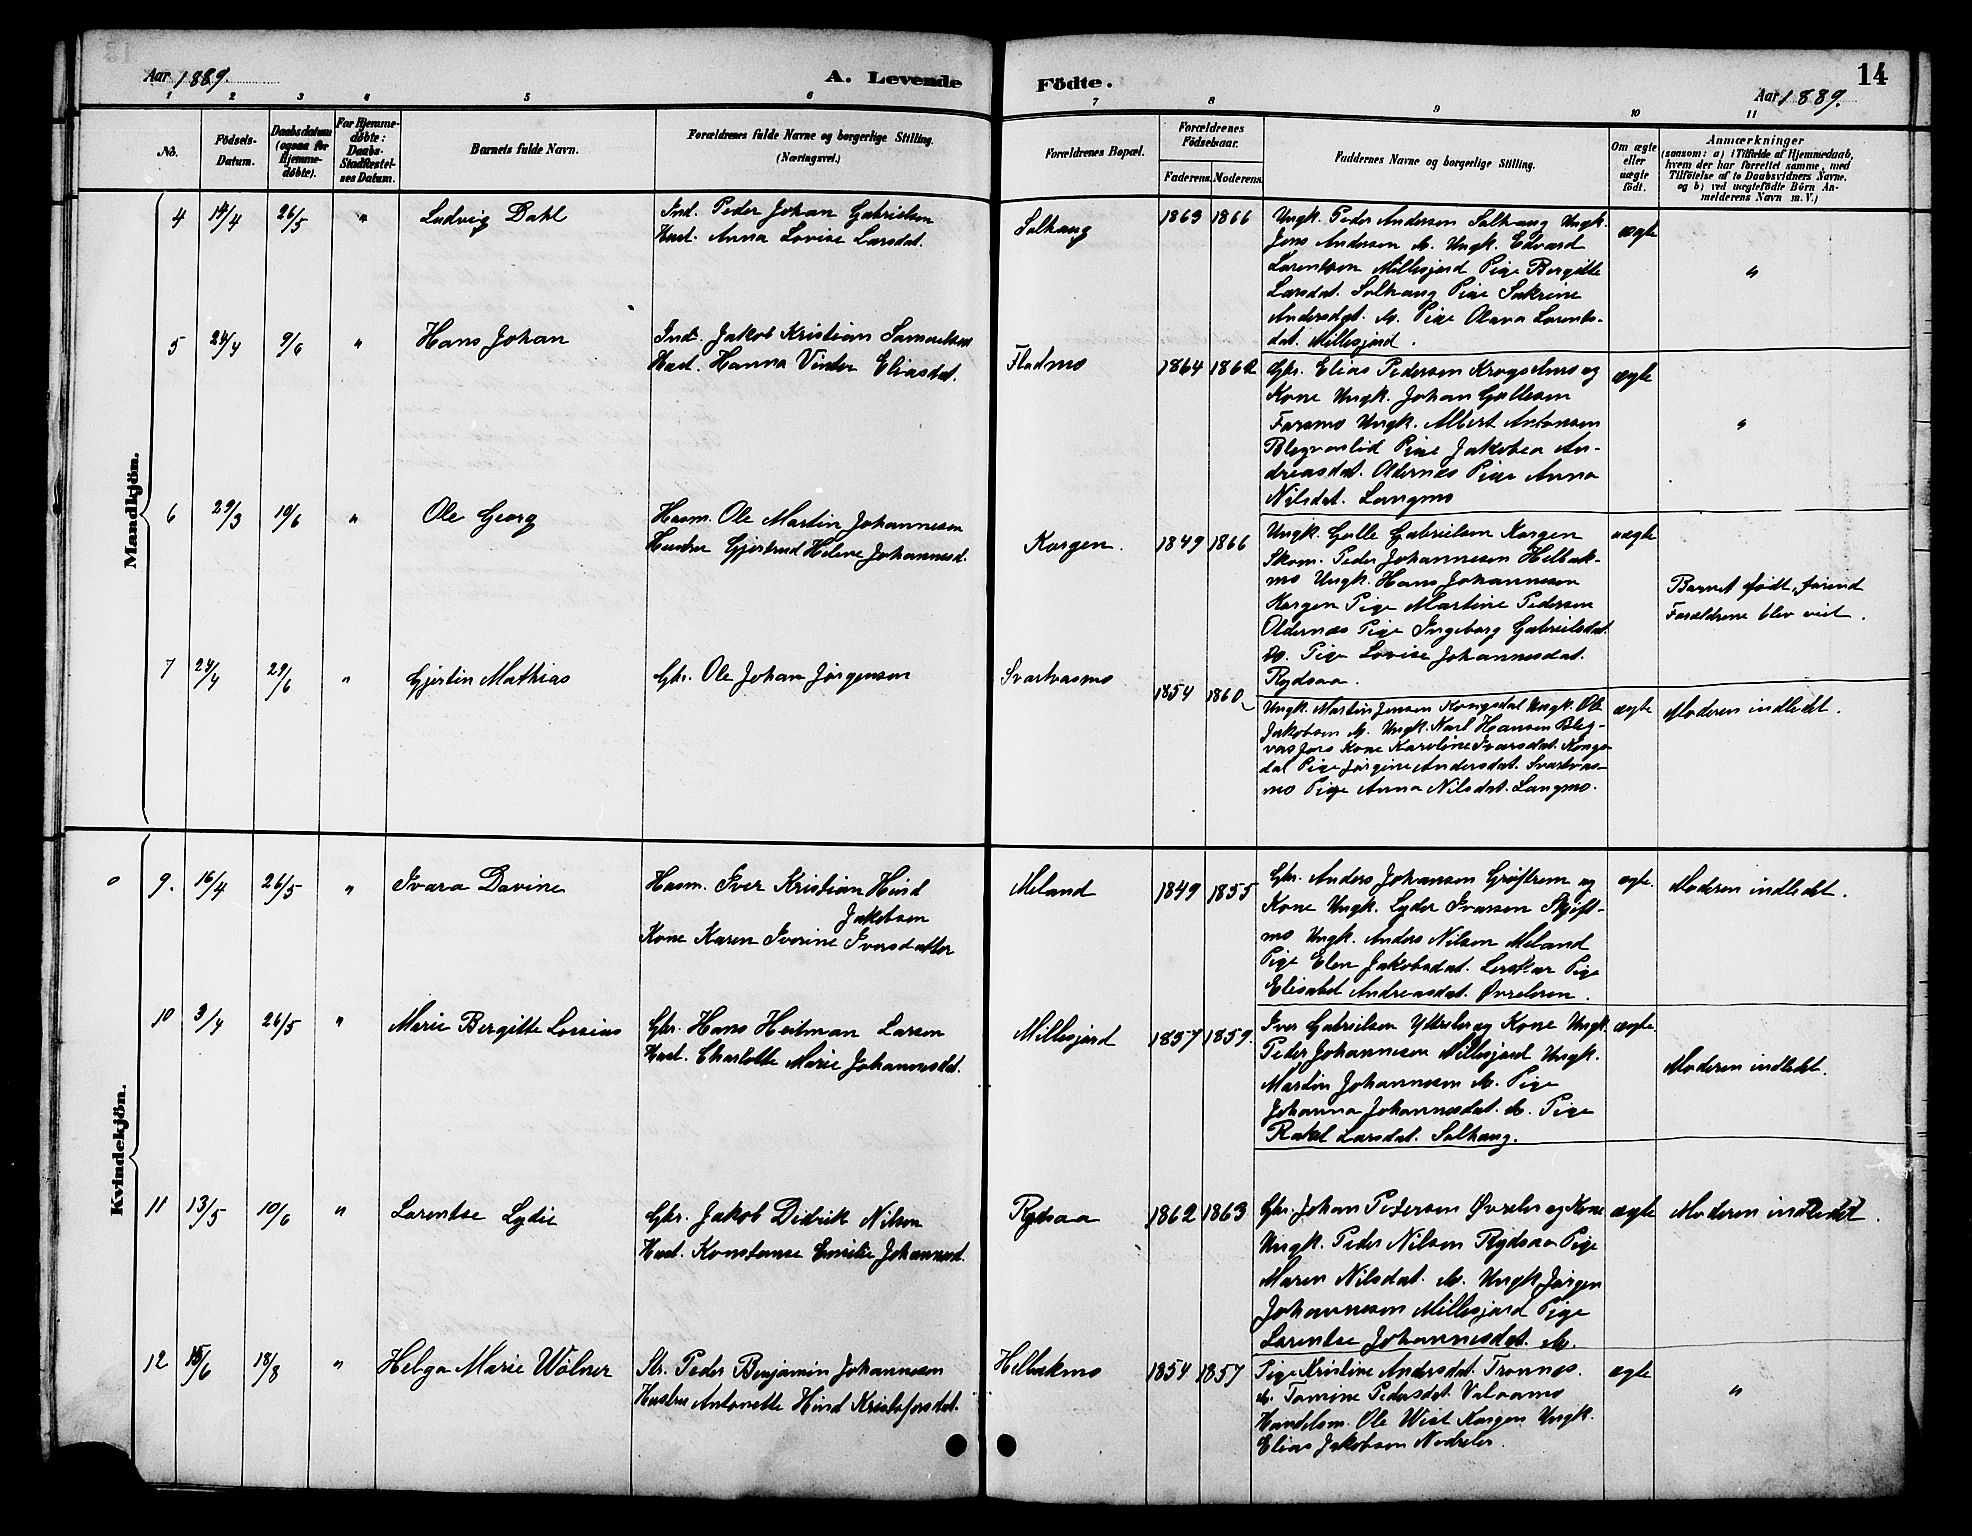 Aar 1889.
A. Levende Födte.
Aar 1889.
14
1 2 3 4 5 6 7 8 9 10 11
No.
Födsels-Datum.
Daabsdatum (ogsaa for Hjemmedøbte).
For Hjemmedøbte: Daabs-Stadfæstelses Datum.
Barnets fulde Navn.
Forældrenes fulde Navne og borgerlige Stilling. (Næringsvei.)
Forældrenes Bopæl.
Forældrenes Födselsaar.
Faderens. Moderens.
Faddernes Navne og borgerlige Stilling.
Om ægte eller uægte født.
Anmærkninger
(saasom: a) i Tilfælde af Hjemmedaab, hvem der har forrettet samme, med Tilföielse af to Daabsvidners Navne. og b) ved uægtefödte Börn Anmelderens Navn m. V.)
Mandkjön.
4 14/4 26/5 " Ludvig Dahl
Ind. Peder Johan Gabrielsen
Hust. Anna Lovise Larsdat.
Solhaug 1863 1866
Ungk. Peder Andersen Solhaug Ungk.
Jens Andersen do. Ungk. Edvard
Larentsen Millesjord Pige Bergitte
Larsdat. Solhaug Pige Sakrine
Andersdat. do. Pige Olava Larents-
dat. Millesjord.
ægte "
5 24/4 9/6 " Hans Johan
Ind. Jakob Kristian Samuelsen
Hust. Hanna Vinter Eliasdat.
Fladmo 1864 1862
Gbr. Elias Pedersen Krogselmo og
Kone Ungk. Johan Gallesen
Farsmo Ungk. Albert Antonsen
Blegvaslid Pige Jakobea An-
dreasdat. Oldernæs Pige Anna
Nilsdat. Langmo
ægte "
6 29/3 10/6 " Ole Georg
Husm. Ole Martin Johannesen
Hustru Gjertrud Helene Johannesd.
Korgen. 1849 1866
Ungk. Galle Gabrielsen Korgen
Skom. Peder Johannesen Helbæk-
mo Ungk. Hans Johannesen
Korgen Pige Martine Pedersen
Oldernæs Pige Ingeborg Gabrielsdat.
do. Pige Lovise Johannesdat.
Rydsaa.
uægte
Barnet født, førend
Forældrene blev viet.
7 24/4 29/6 " Gjertin Mathias
Gbr. Ole Johan Jørgensen
Svartvasmo 1854 1860
Ungk. Martin Jensen Kongsdal Ungk. Ole
Jakobsen do. Ungk. Karl Hansen Bleg-
vasfors Kone Karoline Ivarsdat. Kongs-
dal Pige Jørgine Andersdat. Svartvas-
mo Pige Anna Nilsdat. Langmo.
ægte Moderen indledet.
Kvindekjön.
9. 16/4 26/5 " Ivara Davine
Husm. Iver Kristian Hind
Jakobsen
Kone Karen Iverine Iversdatter
Meland 1849 1855
Gbr. Anders Johansen Grøftrem og
Kone Ungk. Lyder Ivarsen Skjeft-
mo Ungk. Anders Nilsen Meland
Pige Elen Jakobsdat. Lerskar Pige
Elisabet Andreasdat. Øvreleren.
ægte. Moderen indledet.
10 3/4 26/5 " Marie Bergitte Lossius
Gbr. Hans Heitman Larsen
Hust. Charlotte Marie Johannesdat.
Millesjord 1857 1859.
Iver Gabrielsen Ytterler og Kone Ungk.
Peder Johannesen Millesjord Ungk.
Martin Johannesen do. Pige
Johanna Johannesdat. do. Pige
Rakel Larsdat. Solhaug.
ægte
Moderen indledet.
11 13/5 10/6 " Larentse Lydie
Gbr. Jakob Didrik Nilsen
Hust. Konstanse Emilie Johannesd.
Rydsaa 1862 1863
Gbr. Johan Pedersen Øvreler og Kone
Ungk. Peder Nilsen Rydsaa Pige
Maren Nilsdat. do. Ungk. Jørgen
Johannesen Millesjord Pige
Larentse Johannesdat. do.
ægte Moderen indledet.
12 15/6 18/8 " Helga Marie Wølner
Str. Peder Benjamin Johannesen
Hustru Antonette Hind Kristofersdat.
Helbækmo 1854 1857
Pige Kristine Andersdat. Tronnes.
do. Tomine Pedersdat. Valaamo
Handelsm. Ole Wist Korgen Ungk.
Elias Jakobsen Nedreler.
ægte "